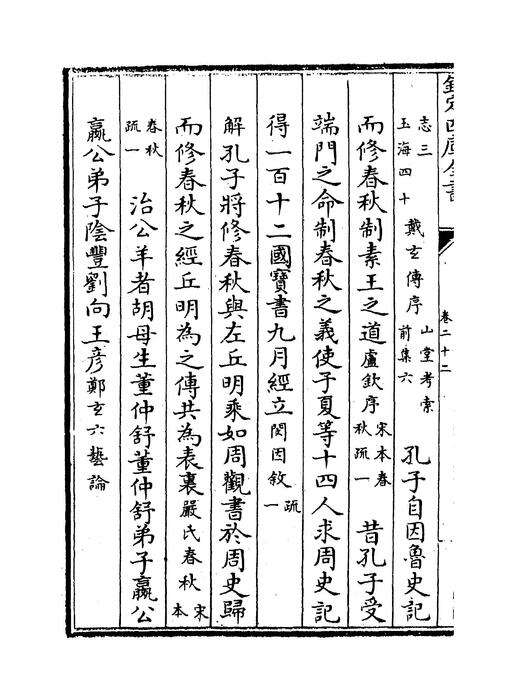 欽定四庫全書 卷二十二
志三玉海四十戴玄傳序山堂考索前集六 孔子自因魯史記
而修春秋制素王之道盧欽序宋本春秋疏一 昔孔子受
端門之命制春秋之義使子夏等十四人求周史記
得一百十二國寶書九月經立閔因敘疏一
解孔子將修春秋與左丘明乘如周觀書於周史歸
而修春秋之經丘明為之傳共為表裏嚴氏春秋宋本
春秋疏一 治公羊者胡母生董仲舒董仲舒弟子嬴公
嬴公弟子陰豐劉向王彦鄭玄六藝論